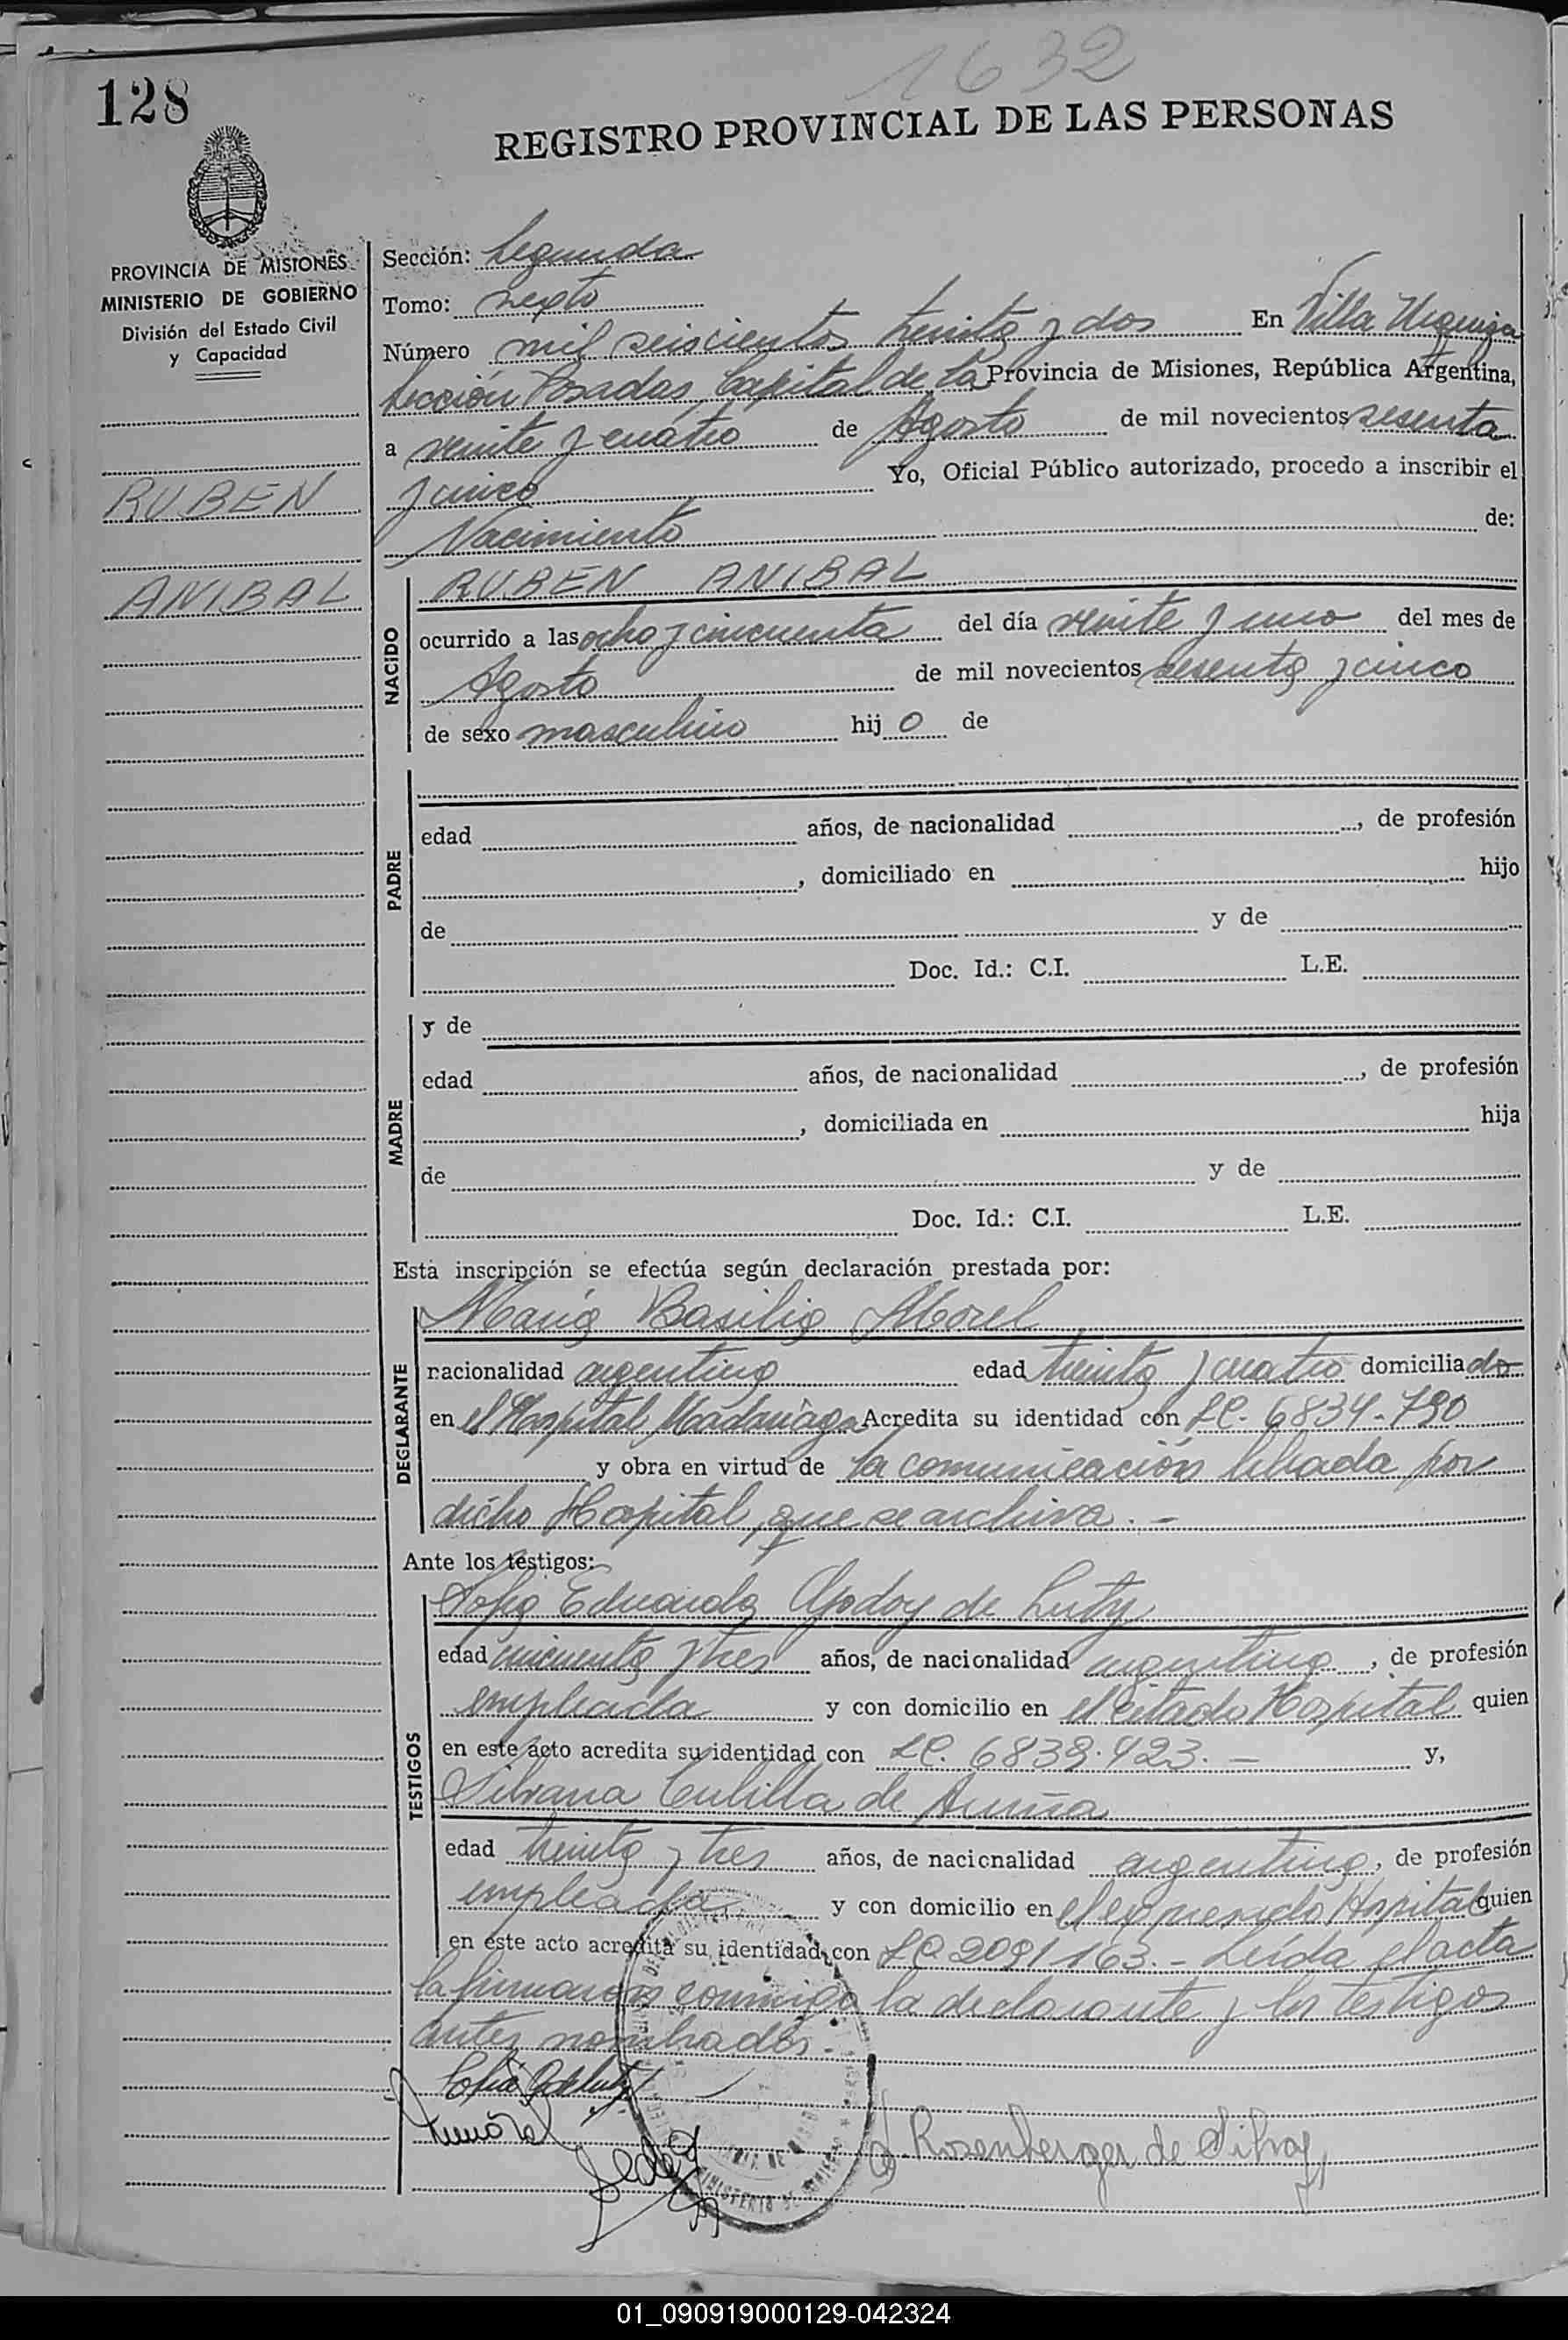 1632
128
REGISTRO PROVINCIAL DE LAS PERSONAS
PROVINCIA DE MISIONES
MINISTERIO DE GOBIERNO
División del Estado Civil
y Capacidad
RUBEN
ANIBAL
Sección: Segunda
Tomo: sexto
Número mil seiscientos treinta y dos En Villa Urquiza
Sección Posadas, Capital de la Provincia de Misiones, República Argentina,
a veinte y cuatro de Agosto de mil novecientos sesenta
y cinco Yo, Oficial Público autorizado, procedo a inscribir el
Nacimiento de:
NACIDO
RUBEN ANIBAL
ocurrido a las ocho y cincuenta del día veinte y uno del mes de
Agosto de mil novecientos sesenta y cinco
de sexo masculino hijo de
PADRE
edad años, de nacionalidad , de profesión
, domiciliado en hijo
de y de
Doc. Id.: C.I. L.E.
MADRE
y de
edad años, de nacionalidad , de profesión
, domiciliada en hija
de y de
Doc. Id.: C.I. L.E.
Esta inscripción se efectúa según declaración prestada por:
DECLARANTE
María Basilia Morel
nacionalidad argentina edad treinta y cuatro domiciliada
en el Hospital Madariaga Acredita su identidad con LC. 6834.790
y obra en virtud de la comunicación librada por
dicho Hospital, que se archiva.-
Ante los testigos:
TESTIGOS
Sofia Eduarda Godoy de
edad cincuenta y tres años, de nacionalidad argentina, de profesión
empleada y con domicilio en el citado Hospital quien
en este acto acredita su identidad con LC. 6839.423.- y,
Silvana de
edad treinta y tres años, de nacionalidad argentina, de profesión
empleada y con domicilio en el expresado Hospital quien
en este acto acredita su identidad con LC 2091163.- Leída el acta
la firmaron conmigo la declarante y los testigos
antes nombrados.-
Rosenberger de Silva
01_090919000129-042324